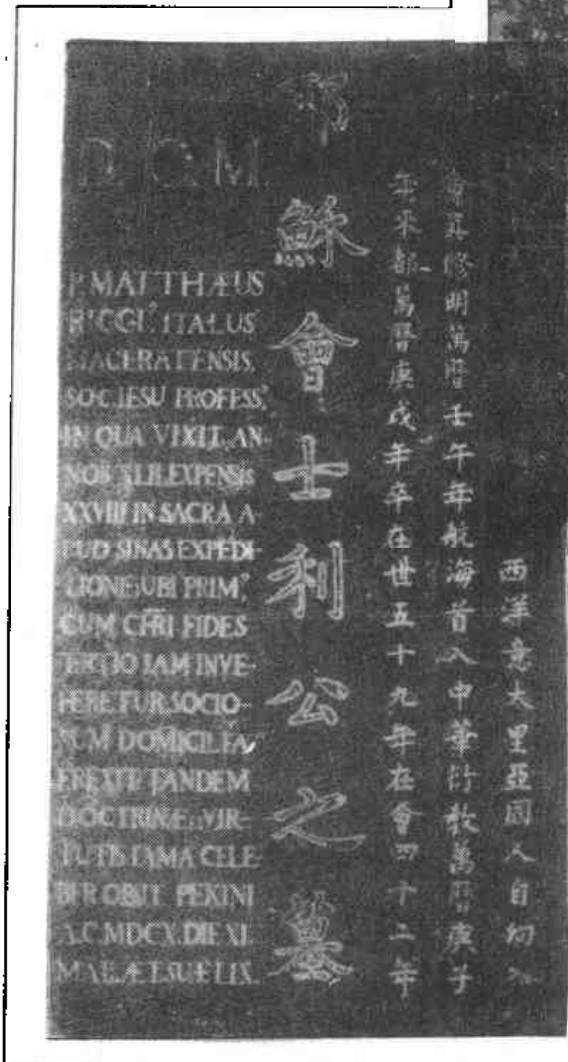 D. O. M.
P. MATTHÆUS
RICCI, ITALUS
MACERATENSIS,
SOC. IESU PROFESS?
IN QUA VIXIT, AN-
NOS XLII. EXPENSIS
XXVIII IN SACRA A-
PUD SINAS EXPEDI-
TIONE; UBI PRIM?
CUM CHRI FIDES
TERTIO IAM INVE-
HERETUR SOCIO-
RUM DOMICILIA
EREXIT TANDEM
DOCTRINÆ VIR-
TUTIS FAMA CELE-
BER OBIIT PEKINI
A.C. MDCX. DIE XI.
MAII. ÆT. SUÆ LIX.
耶穌會士利公之墓
西洋意大里亞國人自幼入
會真修明萬曆壬午年航海首入中華衍教萬曆庚子
年來都萬曆庚戌年卒在世五十九年在會四十二年